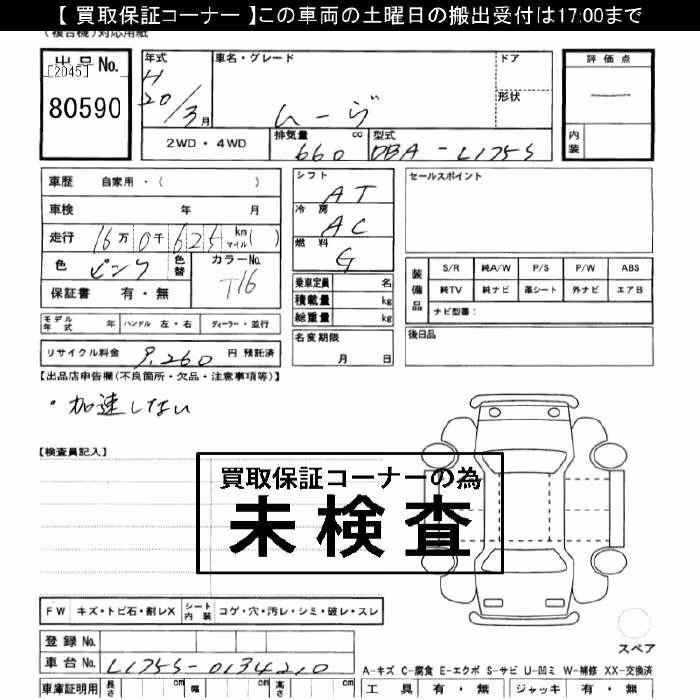 【 買取保証コーナー 】この車両の土曜日の搬出受付は17:00まで
(複合機)対応用紙
出品No. 年式 車名・グレード ドア 評価点
[2045] H
80590 20/3月 ムーヴ 形状 —
2WD・4WD 排気量 660 cc 型式 DBA-L175S 内装
車歴 自家用・( ) シフト AT セールスポイント
車検 年 月 冷房 AC
走行 16万0千625 km マイル( ) 燃料 G
色 ピンク 色替 カラーNo. T16 装備品 S/R 純A/W P/S P/W ABS
保証書 有・無 乗車定員 名 純TV 純ナビ 革シート 外ナビ エアB
積載量 kg ナビ型番:
モデル年式 年 ハンドル 左・右 ディーラー・並行 総重量 kg 後日品
リサイクル料金 9,260 円 預託済 名変期限 月 日
【出品店申告欄(不良箇所・欠品・注意事項等)】
・加速しない
【検査員記入】
買取保証コーナーの為
未検査
FW キズ・トビ石・割レX シート内装 コゲ・穴・汚レ・シミ・破レ・スレ
登録No. スペア
車台No. L175S-0134210
A-キズ C-腐食 E-エクボ S-サビ U-凹ミ W-補修 XX-交換済
車庫証明用 長さ cm 幅 cm 高さ cm 工具 有・無 ジャッキ 有・無